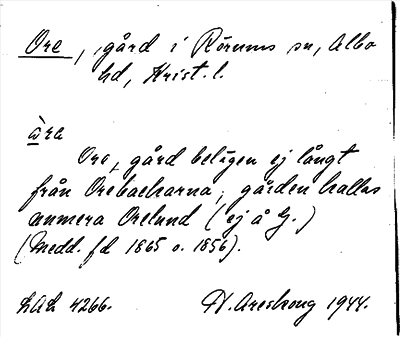 Ore, gård i Rörums sn, Albo
hd, Krist. l.
àra
Ore, gård beligen ej långt
från Orebackarna, gården kallas
numera Orelund (ej å G.)
(Medd. fd 1865 o. 1856).
LAL 4266. A. Areskoug 1944.